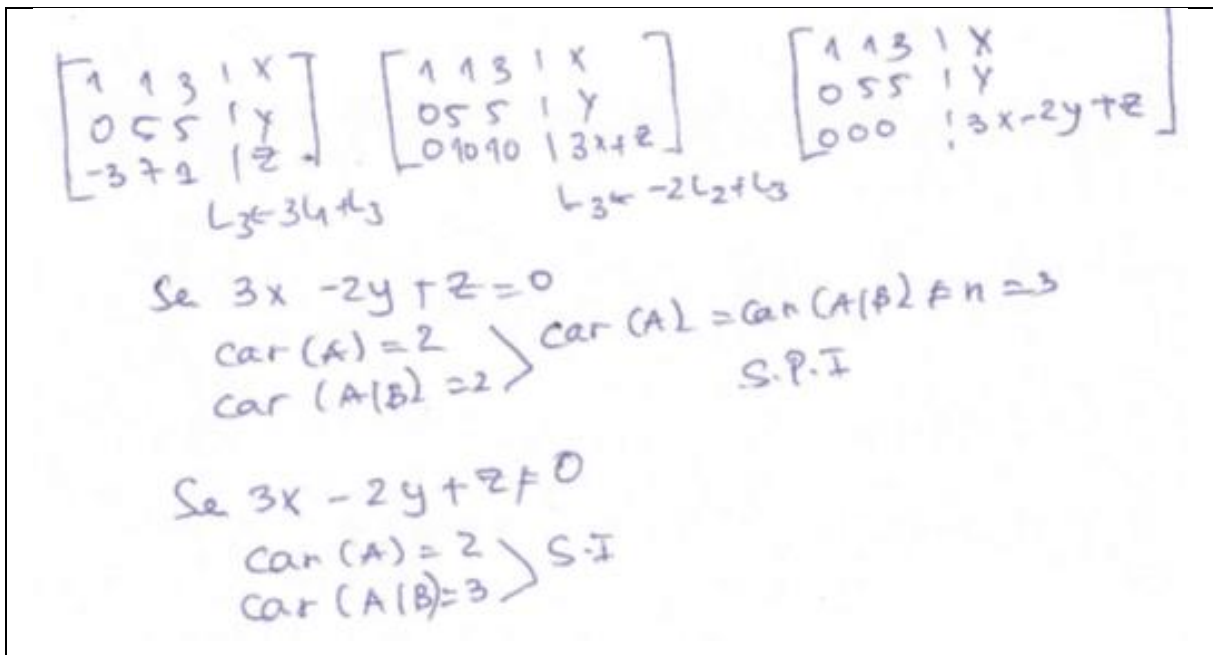 [1 1 3 | X] [1 1 3 | X] [1 1 3 | X]
[0 5 5 | Y] [0 5 5 | Y] [0 5 5 | Y]
[-3 7 1 | Z] [0 10 10 | 3x+z] [0 0 0 | 3x-2y+z]
L3←3L1+L3 L3←-2L2+L3
Se 3x-2y+z=0
car(A)=2
car(A|B)=2 > car(A)=car(A|B)≠n=3
S.P.I
Se 3x-2y+z≠0
car(A)=2
car(A|B)=3 > S.I